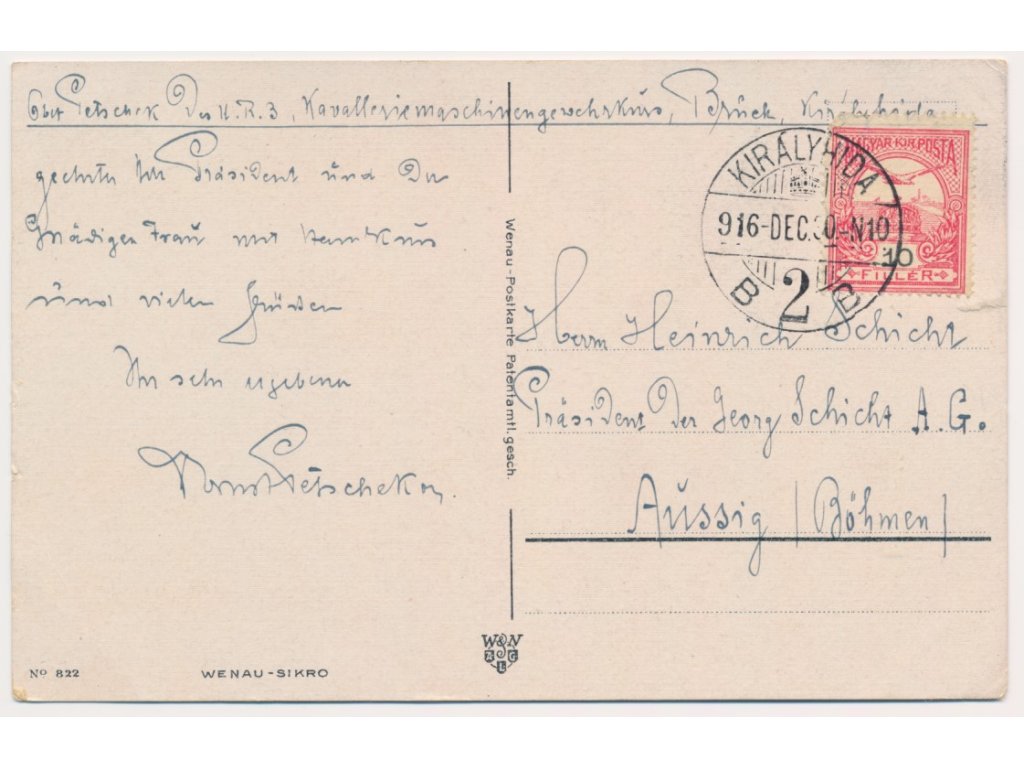 Petschek Des U.R.3, Kavalleriemaschinengewehrkurs, Brück, Királyhida
geehrter Herr Präsident und Der
Gnädigen Frau mit Handkus
und vielen Grüßen
Ihr sehr ergebener
Petschek
Wenau-Postkarte Patentamtl. gesch.
MAGYAR KIR. POSTA
10
FILLÉR
KIRÁLYHIDA
916-DEC.30.-N10
B 2 B
Herrn Heinrich Schicht
Präsident der Georg Schicht A.G.
Aussig (Böhmen)
W&N
No 822
WENAU-SIKRO